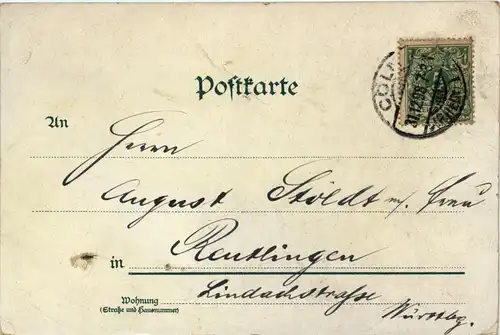 Postkarte
CÖLN
An
Herrn
August Stöldt u/ Frau
in Reutlingen
Wohnung
(Straße und Hausnummer)
Lindachstraße
Württbg.